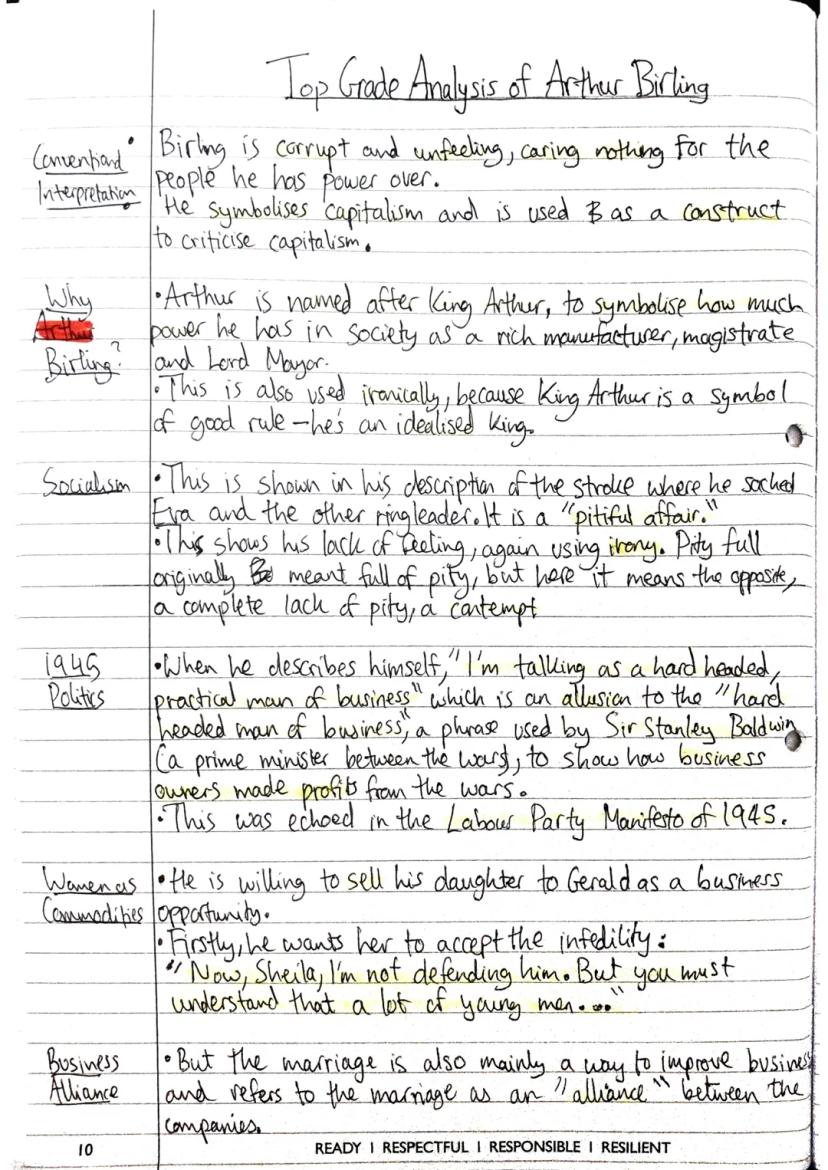 Top Grade Analysis of Arthur Birling
Conventional
Interpretation
Birling is corrupt and unfeeling, caring nothing for the
people he has power over.
He symbolises capitalism and is used as a construct
to criticise capitalism.
Why
Arthur
Birling?
• Arthur is named after King Arthur, to symbolise how much
power he has in society as a rich manufacturer, magistrate
and Lord Mayor.
• This is also used ironically, because King Arthur is a symbol
of good rule – he's an idealised King.
Socialism
• This is shown in his description of the stroke where he sacked
Eva and the other ringleader. It is a "pitiful affair."
• This shows his lack of feeling, again using irony. Pity full
originally meant full of pity, but here it means the opposite,
a complete lack of pity, a contempt
1945
Politics
• When he describes himself, "I'm talking as a hard headed,
practical man of business" which is an allusion to the "hard
headed man of business", a phrase used by Sir Stanley Baldwin
(a prime minister between the wars), to show how business
owners made profits from the wars.
• This was echoed in the Labour Party Manifesto of 1945.
Women as
Commodities
• He is willing to sell his daughter to Gerald as a business
opportunity.
• Firstly, he wants her to accept the infedility:
"Now, Sheila, I'm not defending him. But you must
understand that a lot of young men...."
Business
Alliance
• But the marriage is also mainly a way to improve business
and refers to the marriage as an "alliance" between the
companies.
10
READY | RESPECTFUL | RESPONSIBLE | RESILIENT